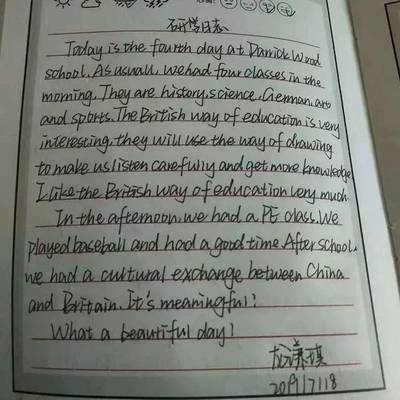 研学日志
Today is the fourth day at Darrick Wood
school. As usuall, we had four classes in the
morning. They are history, science, German, art
and sports. The British way of education is very
interesting, they will use the way of drawing
to make us listen carefully and get more knowledge
I like the British way of education very much.
In the afternoon, we had a PE class. We
played baseball and had a good time. After school,
we had a cultural exchange between China
and Britain. It's meaningful!
What a beautiful day!